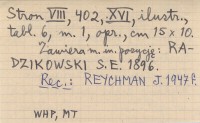 Stron VIII, 402, XVI, ilustr.,
tabl. 6, m. 1, opr., cm 15 x 10.
Zawiera m. in. pozycję: RA-
DZIKOWSKI S. E. 1896.
Rec.: REYCHMAN J. 1947 F.
WHP, MT